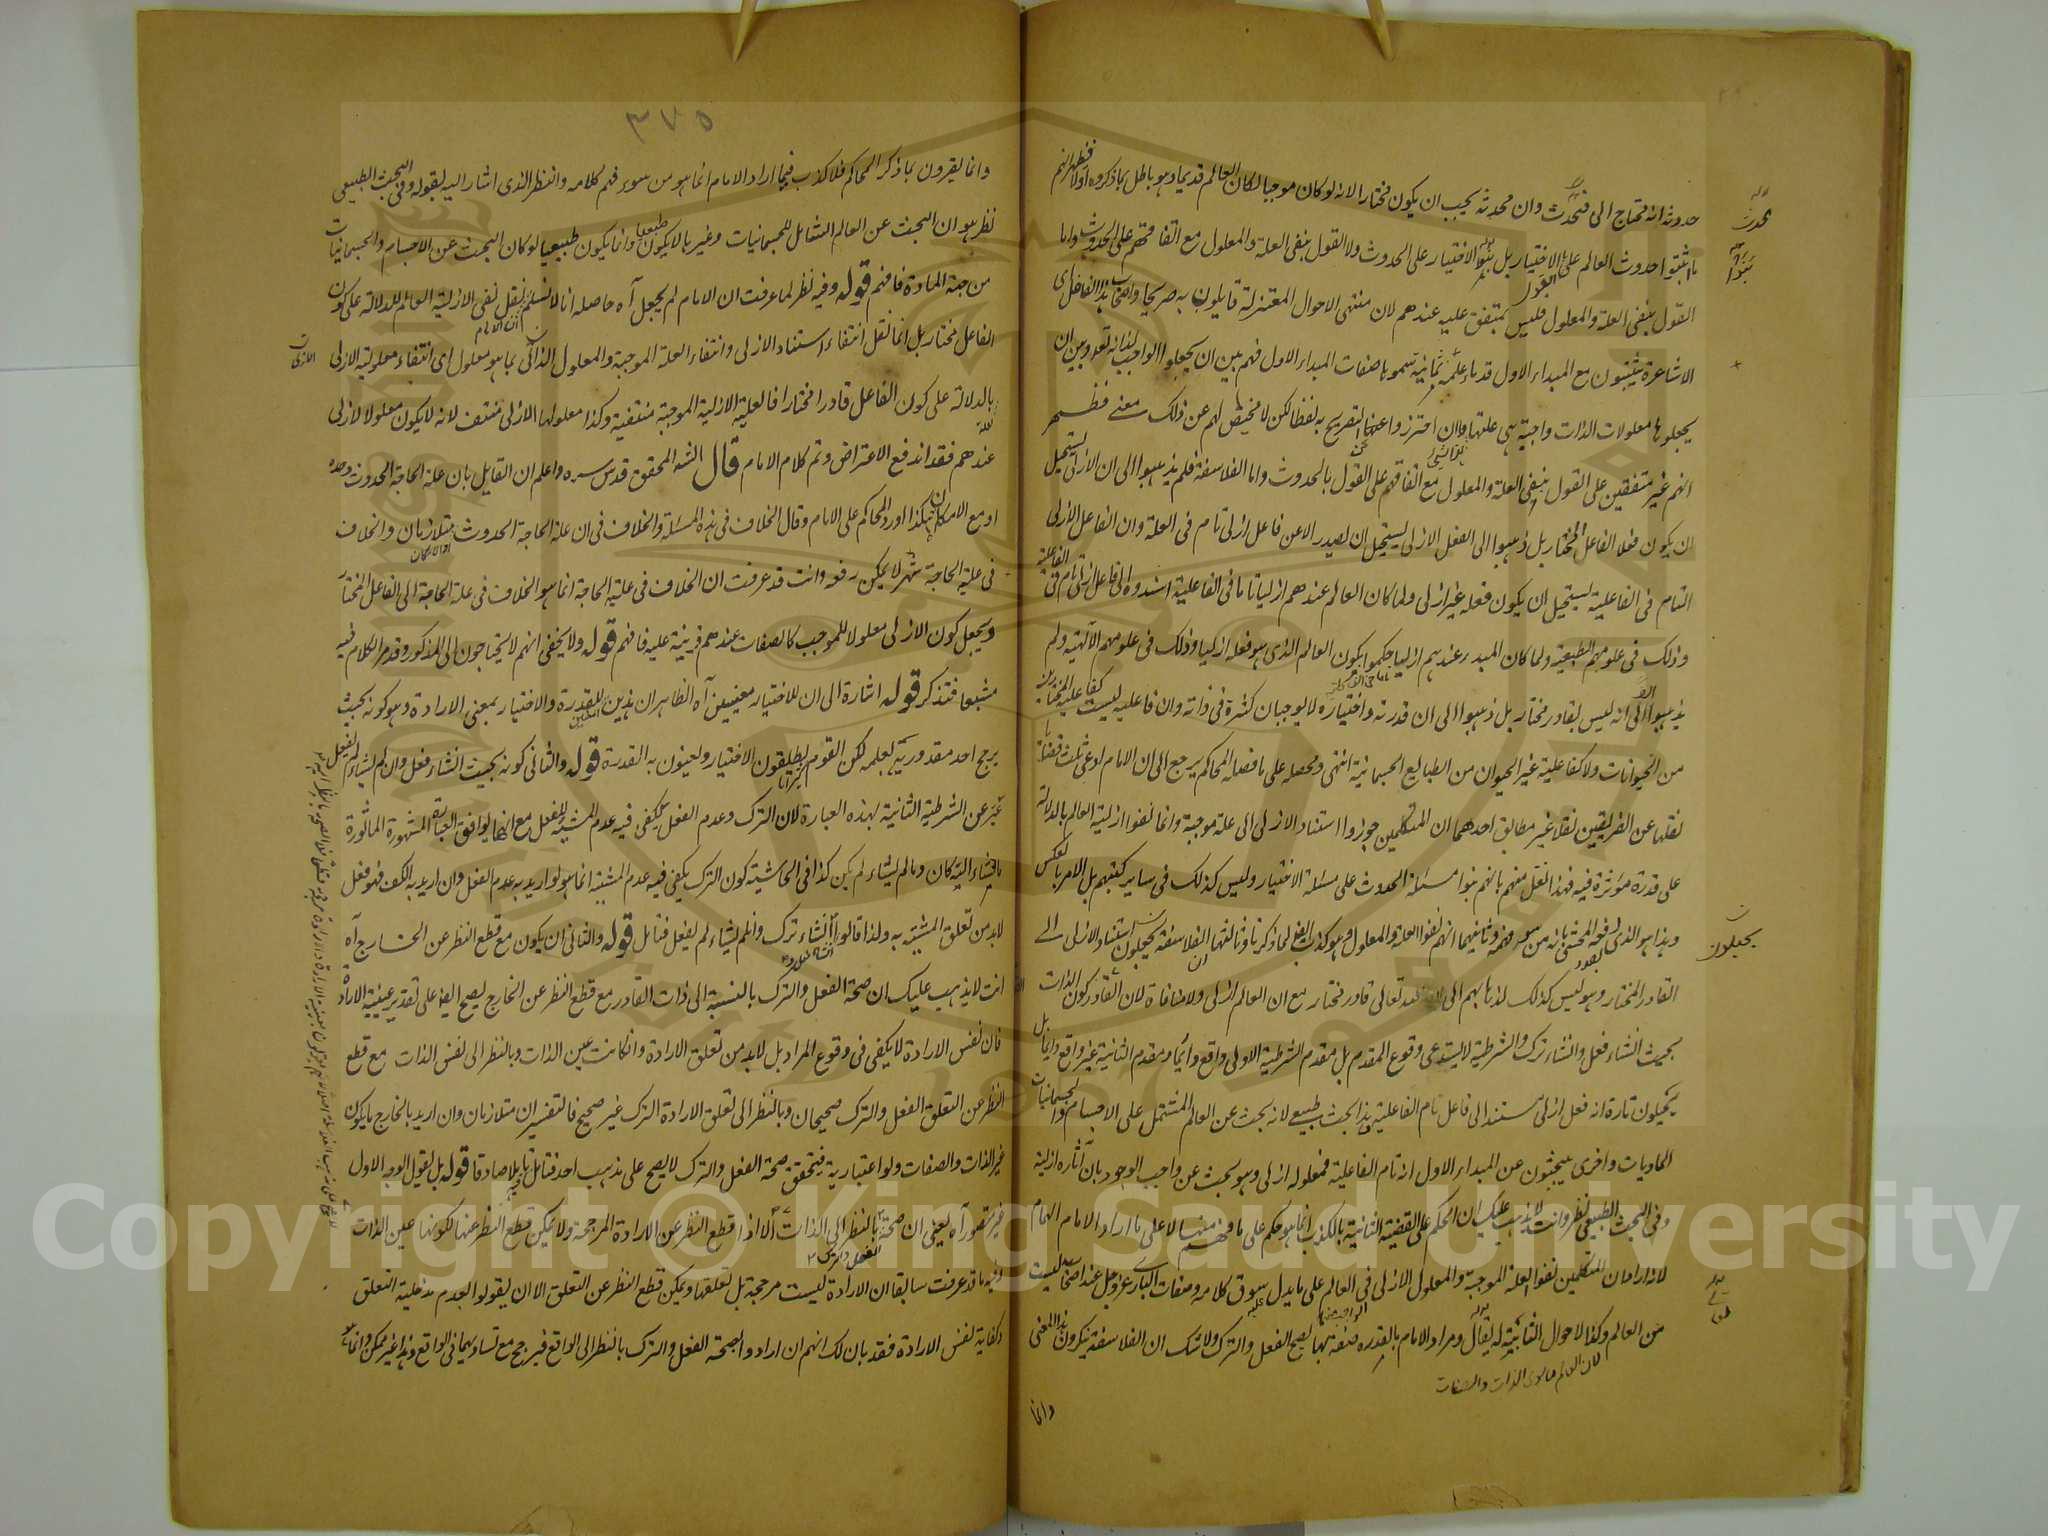 حدوثه انه محتاج الى محدث وان محدثه يجب ان يكون مختارا لانه لو كان موجبا لكان العالم قديما وهو باطل بما ذكروه اولا فظهر انهم
ما اثبتوا حدوث العالم على الاختيار بل بنوا الاختيار على الحدوث ولا القول بنفى العلة والمعلول مع اتفاقهم على الحدوث واما
القول بنفى العلة والمعلول فليس بمتفق عليه عندهم لان مثبتى الاحوال من المعتزلة قايلون به صريحا واصحاب هذا الفاضل اى
الاشاعرة يثبتون مع المبداء الاول قدماء ثمانية سموها صفات المبداء الاول فهم بين ان يجعلوا الواجب لذاته تعدد وبين ان
يجعلوها معلولات لذات واجبة هى علتها وان احترزوا عن التصريح به لفظا لكن لا محيص لهم عن ذلك معنى فظهر
انهم غير متفقين على القول بنفى العلة والمعلول مع اتفاقهم على القول بالحدوث واما الفلاسفة فلم يذهبوا الى ان الازلى يستحيل
ان يكون فعلا لفاعل المختار بل ذهبوا الى الفعل الازلى يستحيل ان يصدر الا عن فاعل ازلى تام فى العلة وان الفاعل الازلى
التام فى الفاعلية يستحيل ان يكون فعله غير ازلى ولما كان العالم عندهم ازليا تاما فى الفاعلية اسندوه الى فاعل ازلى تام فى الفاعلية
وذلك فى علومهم الطبيعية ولما كان المبدء عندهم ازليا حكموا بكون العالم الذى هو فعله ازليا وذلك فى علومهم الالهية ولم
يذهبوا الى انه ليس بقادر مختار بل ذهبوا الى ان قدرته واختياره لا يوجبان كثرة فى ذاته وان فاعليته ليست كفاعلية المختارين
من الحيوانات ولا كفاعلية غير الحيوان من الطبايع الجسمانية انتهى ومحصله على ما فصله المحاكم يرجع الى ان الامام ادعى ثلث قضايا
نقلها عن الفريقين نقلا غير مطابق احدهما ان المتكلمين جوزوا استناد الازلى الى علة موجبة وانما نفوا ازلية العالم بالدلالة
على قدرة مؤثرة فيه فهذا نقل منهم بانهم بنوا مسئلة الحدوث على مسئلة الاختيار وليس كذلك فى ساير كتبهم بل الامر بالعكس
وهذا هو الذى دفعه المحشى بانه من سوء فهمه وثانيهما انهم نفوا العلة والمعلول وهو كذب ايضا لما ذكرنا وثالثها ان الفلاسفة يحيلون استناد الازلى الى
القادر المختار وهو ليس كذلك لذهابهم الى ان الله تعالى قادر مختار مع ان العالم ازلى ولا منافاة لان القادر كون الذات
بحيث ان شاء فعل وان شاء ترك والشرطية لا يستدعى وقوع المقدم بل مقدم الشرطية الاولى واقع دائما ومقدم الثانية غير واقع دائما بل
يحيلون تارة انه فعل ازلى مستند الى فاعل تام الفاعلية وهذا بحث طبيعى لانه بحث عن العالم المشتمل على الاجسام والجسمانيات
الماديات واخرى يبحثون عن المبداء الاول انه تام الفاعلية فمعلوله ازلى وهو بحث عن واجب الوجود بان آثاره ازلية
وفى البحث الطبيعى نظر وانت لا يذهب عليك ان الحكم على القضية الثانية بالكذب انما هو حكم على ما فهم منها لا على ما اراد الامام الهمام
لانه اراد ان المتكلمين نفوا العلة الموجبة والمعلول الازلى فى العالم على ما يدل سوق كلامه وصفات البارى عز وجل عند اصحابه ليست
من العالم وكذا الاحوال الثابتة له تعالى ومراد الامام بالقدرة صفة بها يصح الفعل والترك ولا شك ان الفلاسفة ينكرون هذا المعنى
لان العالم ما سوى الذات والصفات
وانما
محدث
بنوا
يحيلون
٣٧٥
وانما يقرون بما ذكر المحاكم فلا كذب فيما اراد الامام انما هو من سوء فهم كلامه والنظر الذى اشار اليه بقوله وفى البحث الطبيعى
نظر هو ان البحث عن العالم الشامل للجسمانيات وغيرها لا يكون طبيعيا وانما يكون طبيعيا لو كان البحث عن الاجسام والجسمانيات
من جهة المادة فافهم قوله وفيه نظر لما عرفت ان الامام لم يجعل آه حاصله انا لا نسلم نقل نفى الازلية العالم للدلالة على كون
الفاعل مختار بل انما نقل انتفاء استناد الازلى وانتفاء العلة الموجبة والمعلول الذاتى بما هو معلول اى انتفاء معلولية الازلى
بالدلالة على كون الفاعل قادرا مختارا فالعلية الازلية الموجبة منتفية وكذا معلولها الازلى منتف لانه لا يكون معلولا لازلى
عندهم فقد اندفع الاعتراض وتم كلام الامام قال الشه المحقق قدس سره واعلم ان القايل بان علة الحاجة الحدوث وحده
او مع الامكان هكذا اورد المحاكم على الامام وقال الخلاف فى هذه المسئلة والخلاف فى ان علة الحاجة الحدوث او الامكان متلازمان والخلاف
فى علية الحاجة شهر لا يمكن رفعه وانت قد عرفت ان الخلاف فى علية الحاجة انما هو الخلاف فى علة الحاجة الى الفاعل المختار
ويجعل كون الازلى معلولا للموجب كالصفات عندهم قرينة عليه فافهم قوله ولا يخفى انهم لا يحتاجون الى المذكور وقد مر الكلام فيه
مشبعا فتذكر قوله اشارة الى ان للاختيار معنيين آه الظاهر ان هذين المعنيين للقدرة والاختيار بمعنى الارادة وهو كونه بحيث
يرجح احد مقدوريه بعلمه لكن القوم يطلقون الاختيار ويعنون به القدرة قوله والثانى كونه بحيث ان شاء فعل وان لم يشاء لم يفعل
عبر عن الشرطية الثانية بهذه العبارة لان الترك وعدم الفعل يكفى فيه عدم المشية للفعل مع انها يوافق العبارة المشهورة الماثورة
ما شاء الله كان وما لم يشاء لم يكن كذا فى الحاشية كون الترك يكفى فيه عدم المشية انما هو لو اريد به عدم الفعل وان اريد به الكف فهو فعل
لابد من تعلق المشية به ولذا قالوا ان شاء ترك وان لم يشاء لم يفعل فتامل قوله والثانى ان يكون مع قطع النظر عن الخارج آه
انت لا يذهب عليك ان صحة الفعل والترك بالنسبة الى ذات القادر مع قطع النظر عن الخارج يصح ايضا على تقدير عينية الارادة
فان نفس الارادة لا يكفى فى وقوع المراد بل لابد من تعلق الارادة وان كانت عين الذات وبالنظر الى نفس الذات مع قطع
النظر عن التعلق الفعل والترك صحيحان وبالنظر الى تعلق الارادة الترك غير صحيح فالتفسيران متلازمان وان اريد بالخارج ما يكون
غير الذات والصفات ولو اعتبارية فتحقق صحة الفعل والترك لا يصح على مذهب احد فتامل تاملا صادقا قوله بل نقول الوجه الاول
غير متصور آه يعنى ان صحة الفعل والترك بالنظر الى الذات الا اذا قطع النظر عن الارادة المرجحة ولا يمكن قطع النظر عنها لكونها عين الذات
وفيه ما قد عرفت سابقا ان الارادة ليست مرجحة بل تعلقها ويمكن قطع النظر عن التعلق الا ان يقولوا لعدم مدخلية التعلق
وكفاية نفس الارادة فقد بان لك انهم ان ارادوا بصحة الفعل والترك بالنظر الى الواقع فيرجح مع تساويهما فى الواقع وهذا غير ممكن وانما